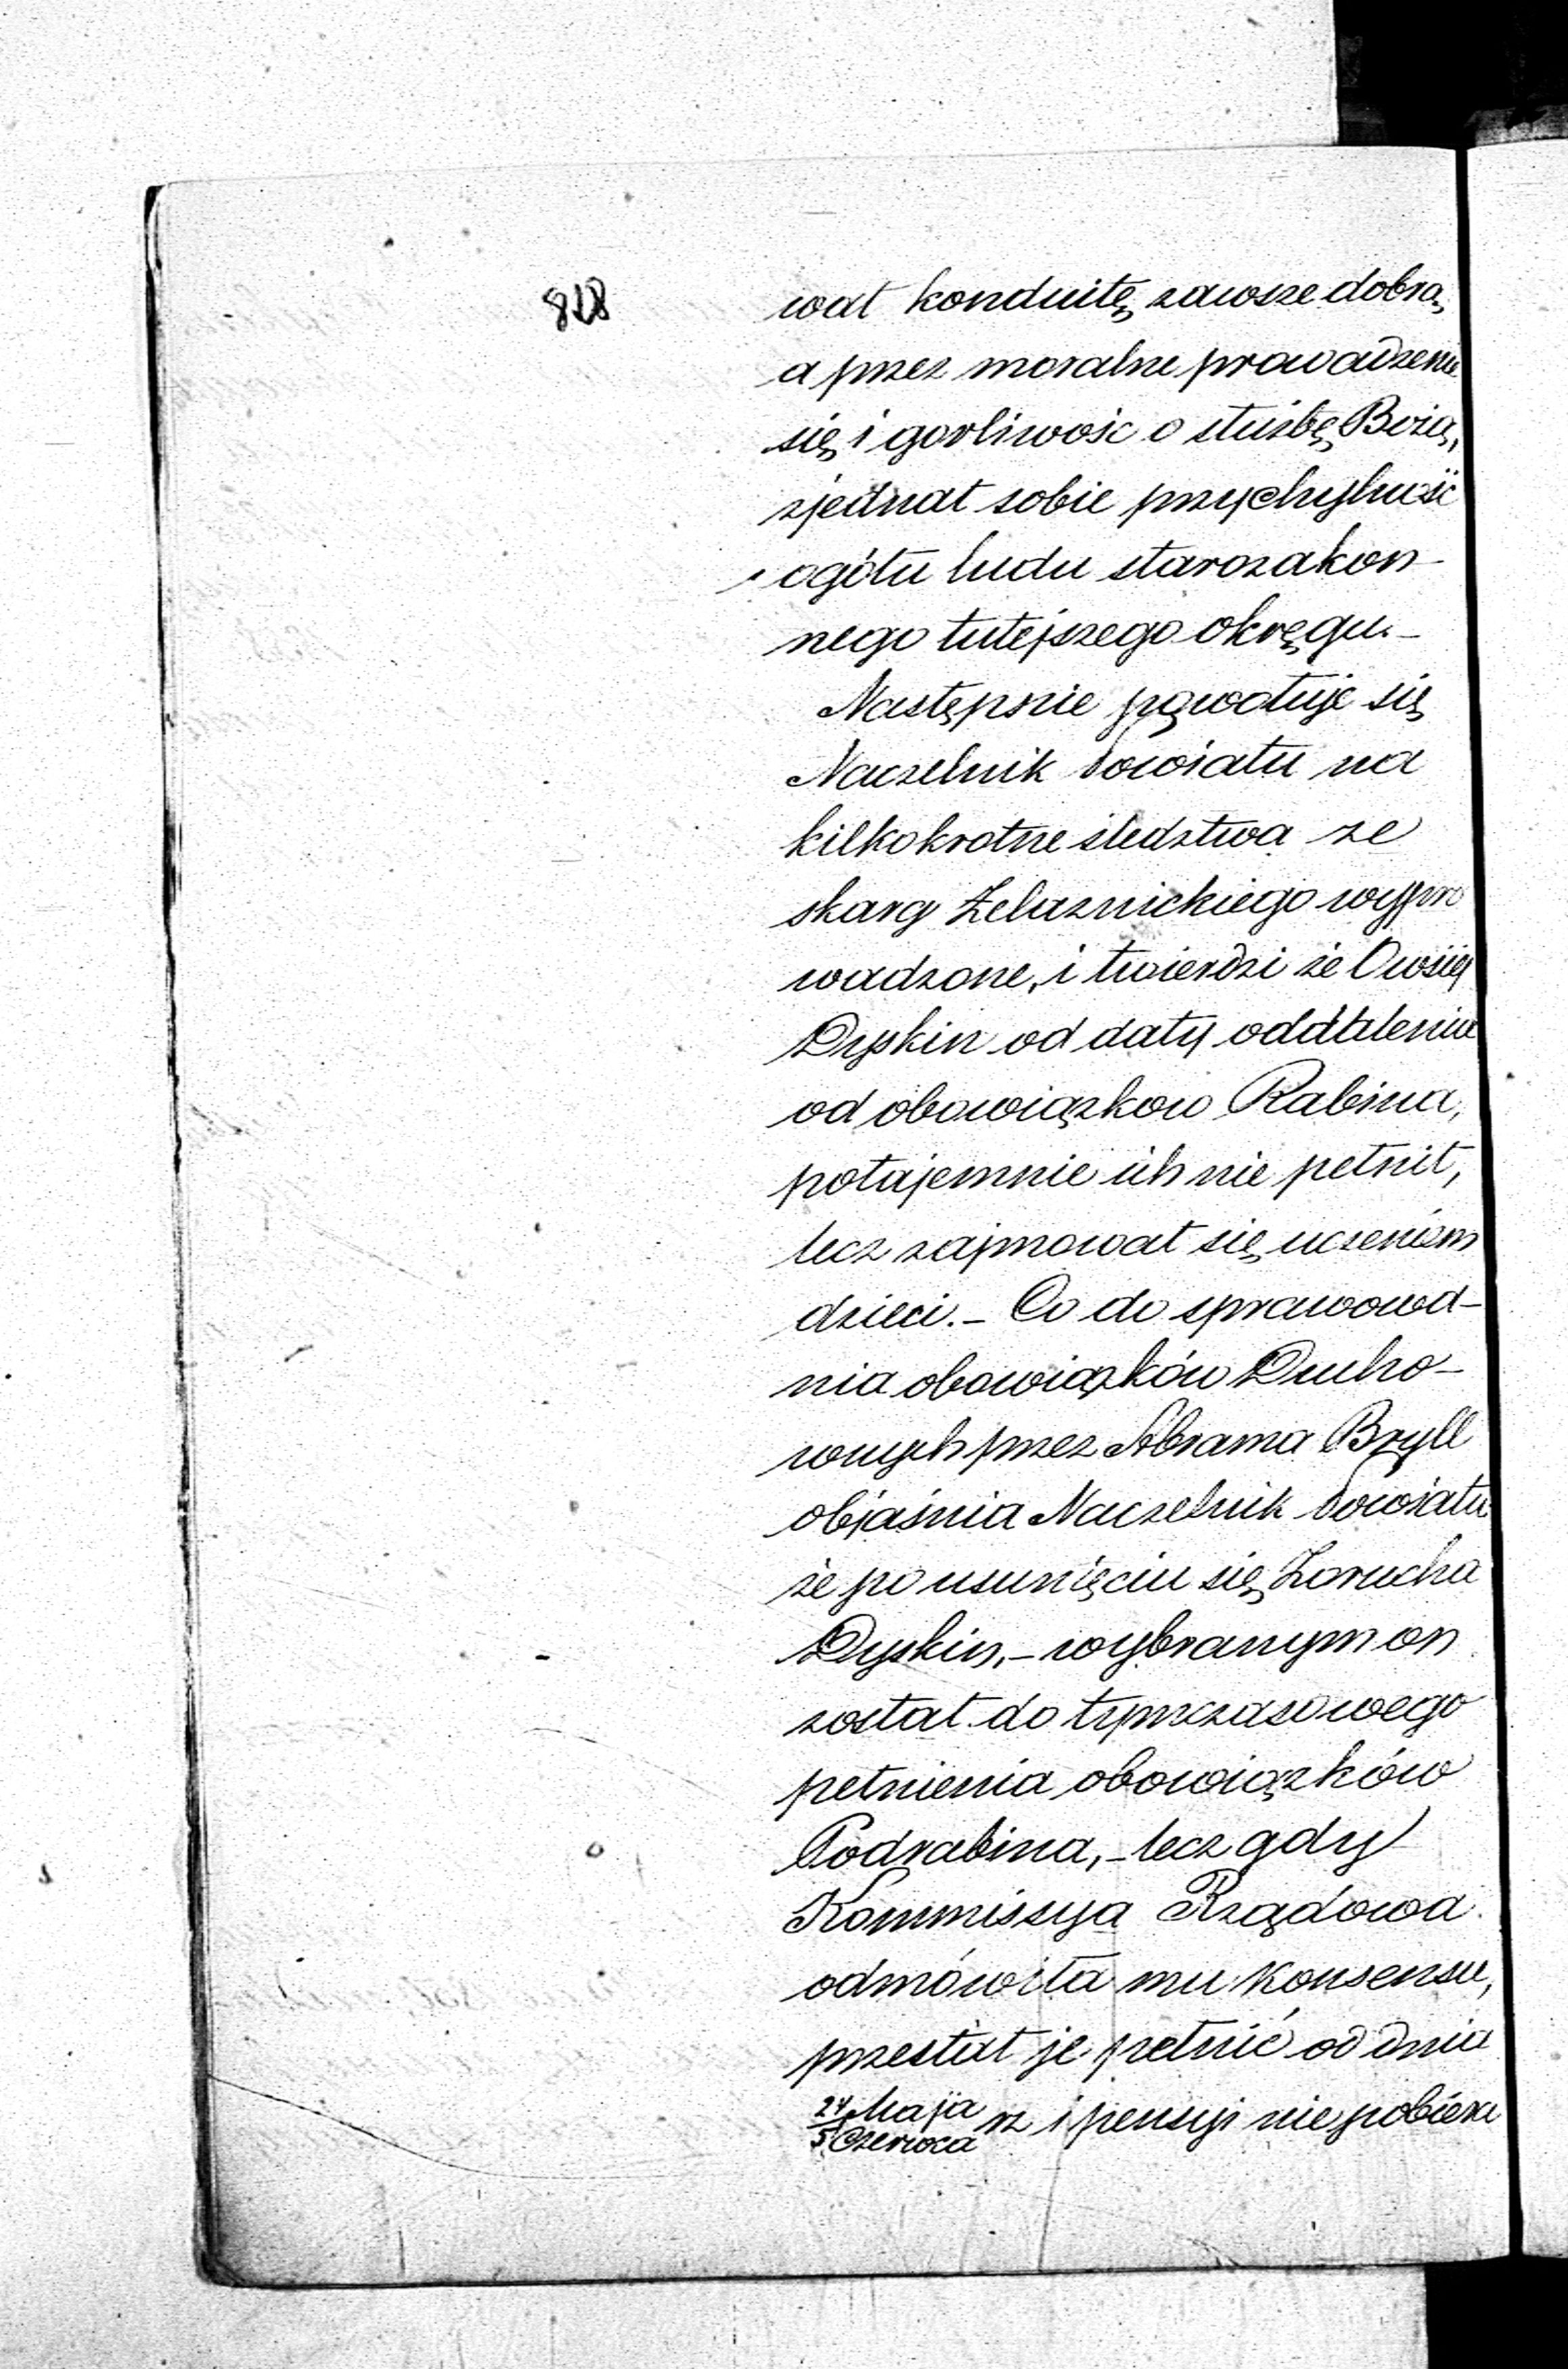 828
wał konduitę zawsze dobrą
a przez moralne prowadzenie
się i gorliwość o służbę Bożą,
zjednał sobie przychylność
ogółu ludu starozakon-
nego tutejszego okręgu.-
Następnie powołuje się
Naczelnik Powiatu na
kilkokrotne śledztwa ze
skarg Żelaznickiego wypro
wadzone, i twierdzi że Owsiej
Dyskin od daty oddalenia
od obowiązkow Rabina,
potajemnie ich nie pełnił,
lecz zajmował się uczeniem
dzieci.- Co do sprawowa-
nia obowiązków Ducho-
wnych przez Abrama Bryll
objaśnia Naczelnik Powiatu
że po usunięciu się Zorucha
Dyskin,- wybranym on
został do tymczasowego
pełnienia obowiązków
Podrabina,- lecz gdy
Kommissya Rządowa
odmówiła mu konsensu,
przestał je pełnić od dnia
24 Maja / 5 Czerwca rz i pensyi nie pobiera